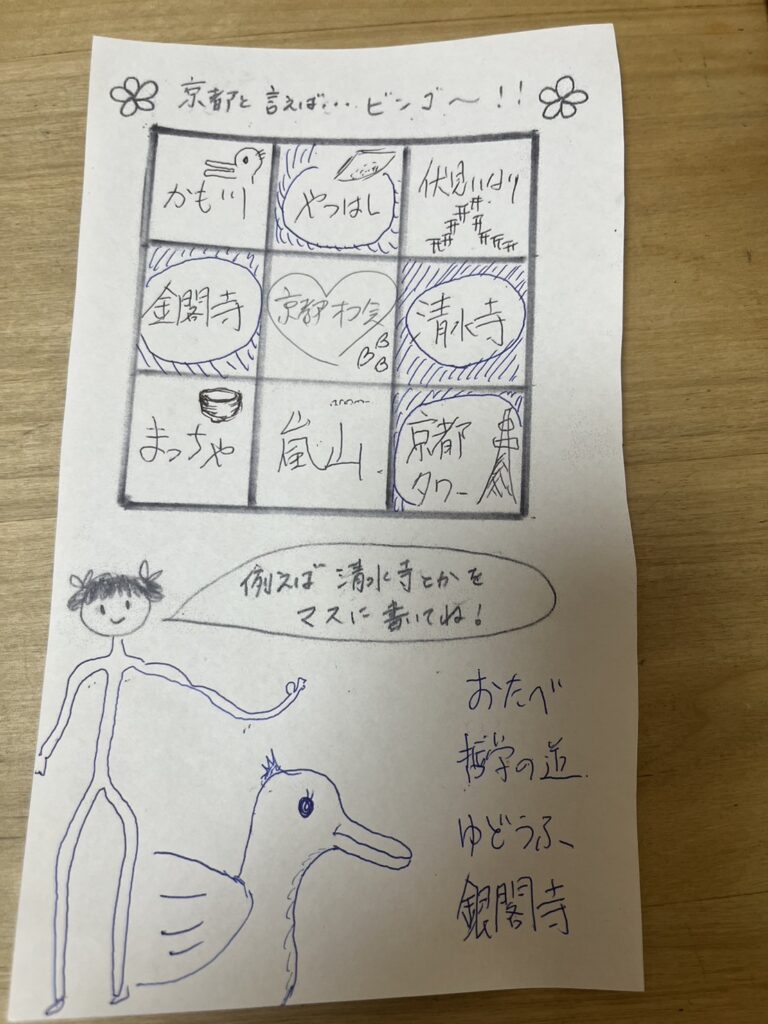 京都と言えば・・・ビンゴ〜!!
かも川
やつはし
伏見いなり
金閣寺
京都オフ会
BBB
清水寺
まっちゃ
嵐山
京都
タワー
例えば 清水寺とかを
マスに書いてね!
おたべ
哲学の道
ゆどうふ
銀閣寺